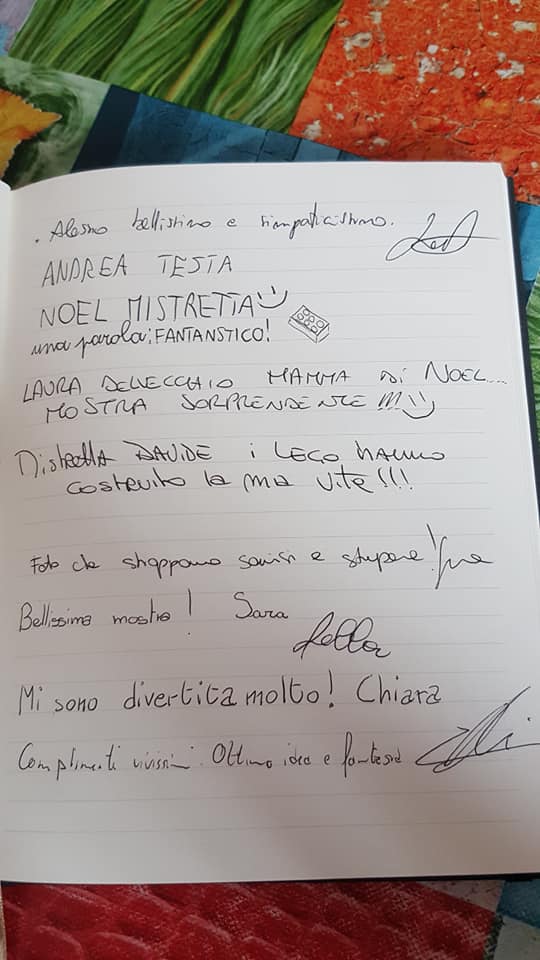 bellissimo e simpaticissimo.
ANDREA TESTA
NOEL MISTRETTA
una parola: FANTANSTICO!
LAURA DELVECCHIO MAMMA DI NOEL...
MOSTRA SORPRENDENTE !!!
MISTRETTA DAVIDE i LEGO HANNO
COSTRUITO la mia vita!!!
Foto che strappano sorrisi e stupore!
Bellissima mostra! Sara
Mi sono divertita molto! Chiara
Complimenti vivissimi. Ottima idea e fantasia